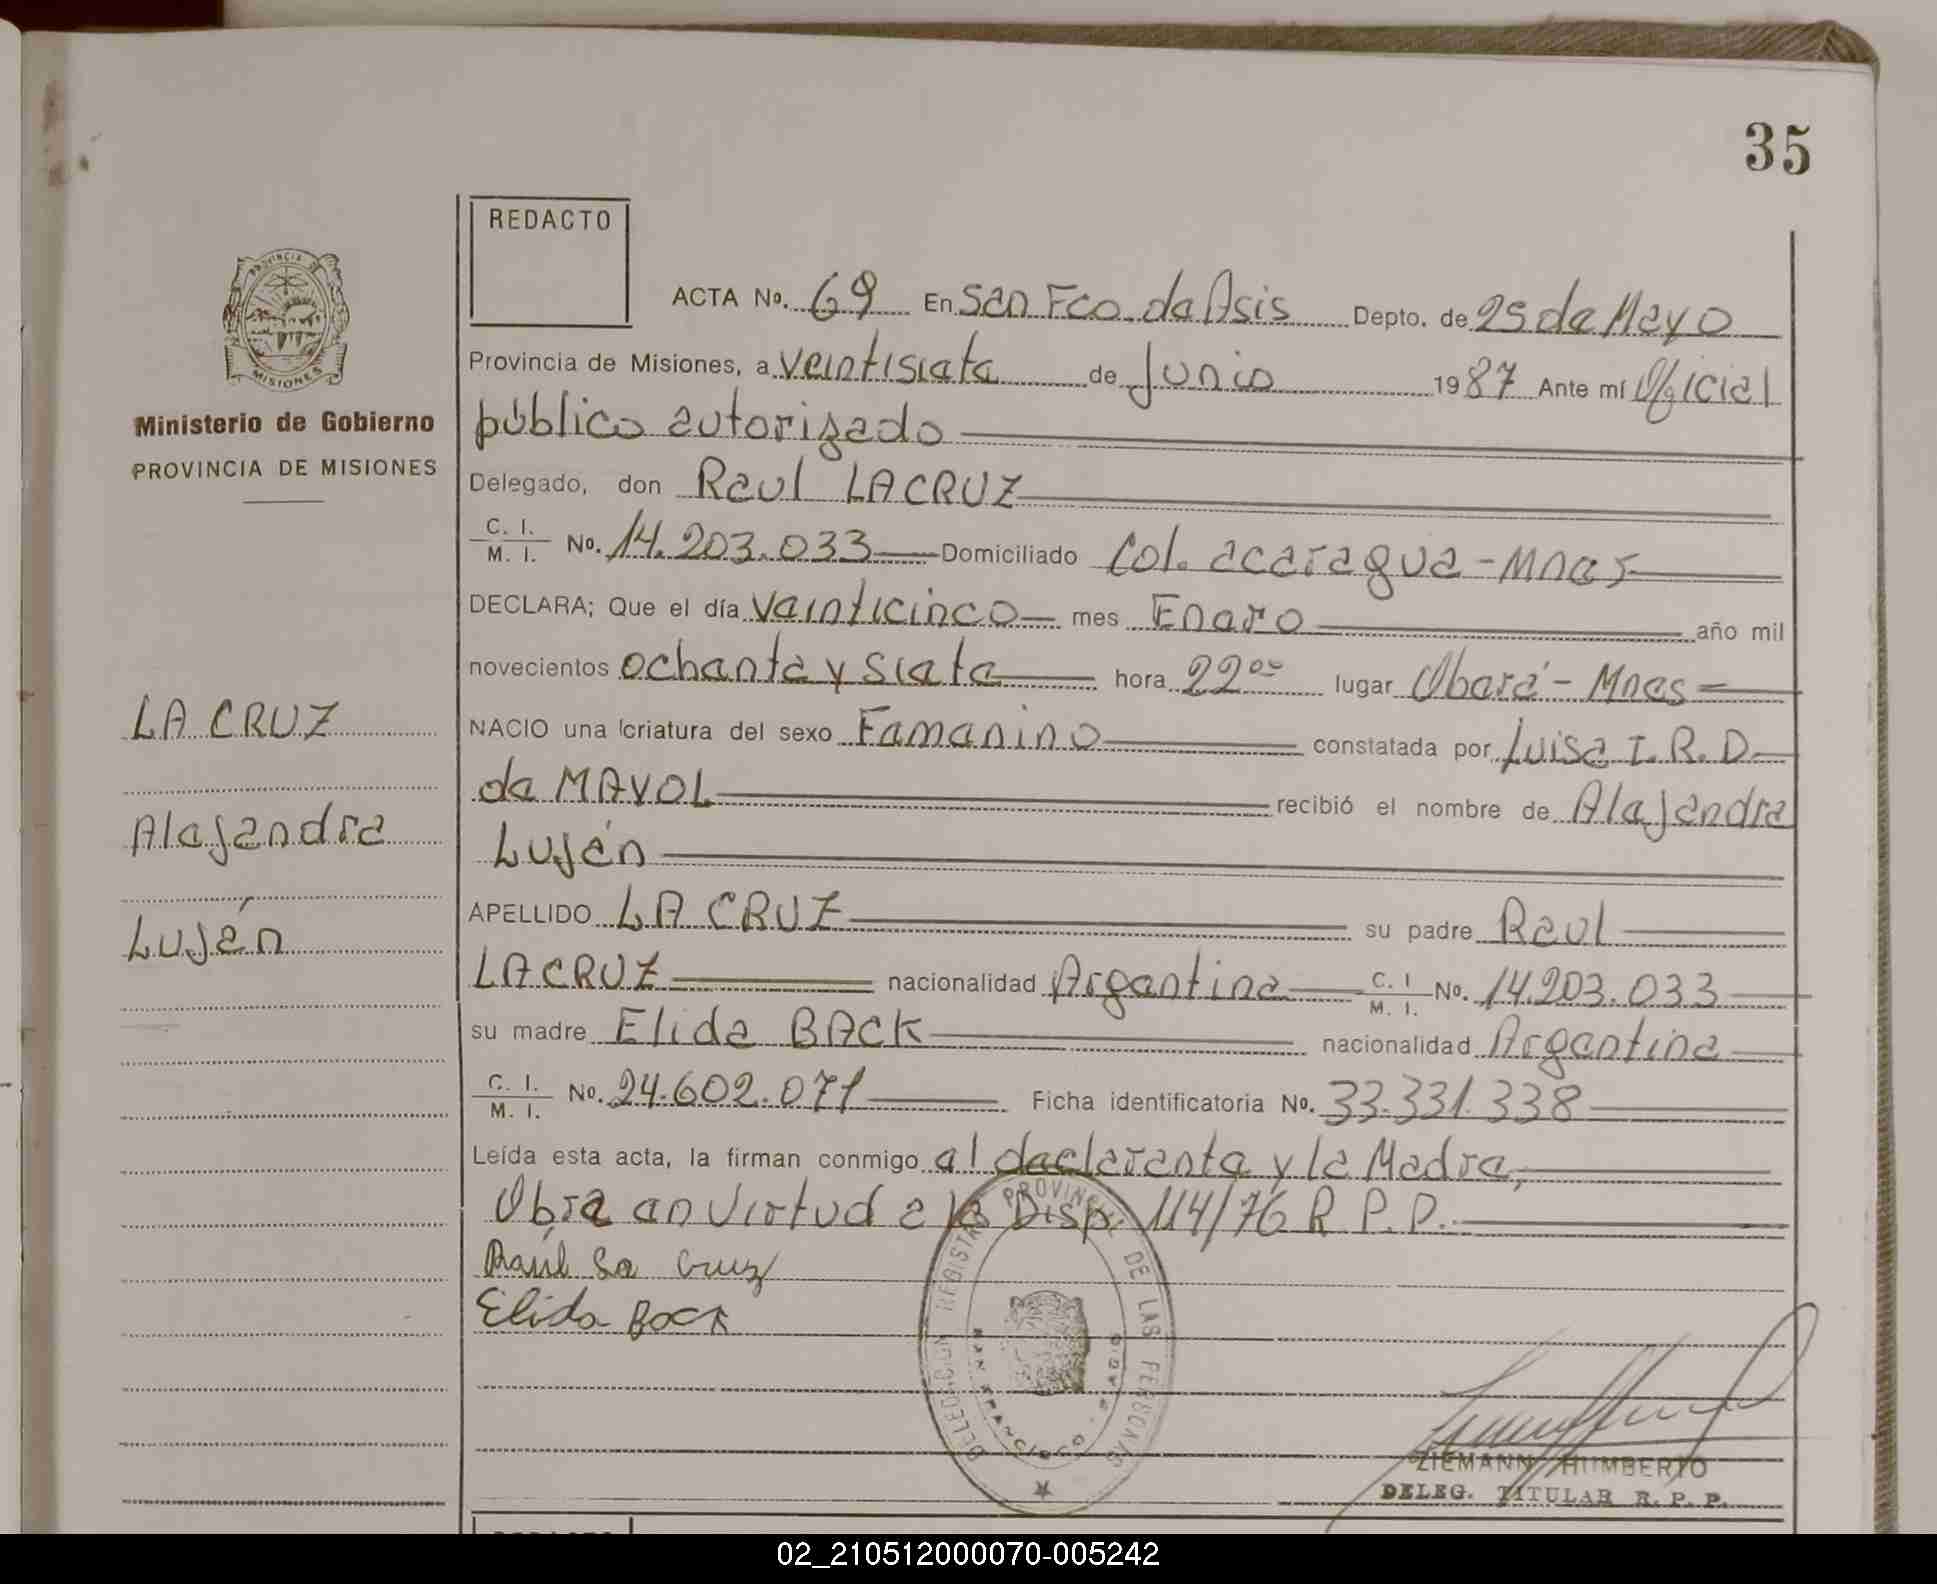 35
REDACTO
ACTA Nº. 69 En San Fco. de Asis Depto. de 25 de Mayo
Provincia de Misiones, a veintisiete de Junio 1987 Ante mí Oficial
público autorizado
Ministerio de Gobierno
PROVINCIA DE MISIONES
Delegado, don Raul LA CRUZ
C. I. M. I. Nº. 14.203.033 Domiciliado Col. acaragua - Mnes
DECLARA; Que el día veinticinco mes Enero año mil
novecientos ochenta y siete hora 22°° lugar Oberá - Mnes
LA CRUZ
NACIO una criatura del sexo Femenino constatada por Luisa I. R. D.
de MAYOL recibió el nombre de Alejandra
Alejandra
Luján
APELLIDO LA CRUZ su padre Raul
Luján
LA CRUZ nacionalidad Argentina C. I. M. I. Nº. 14.203.033
su madre Elida BACK nacionalidad Argentina
C. I. M. I. Nº. 24.602.071 Ficha identificatoria Nº. 33.331.338
Leída esta acta, la firman conmigo el declarante y la Madre,
Obra en virtud a la Disp. 114/76 R. P. P.
Raúl La Cruz
Elida Back
DELEGACION REGISTRO PROVINCIAL DE LAS PERSONAS
SAN FRANCISCO DE ASIS
ZIEMANN HUMBERTO
DELEG. TITULAR R. P. P.
REDACTO
02_210512000070-005242